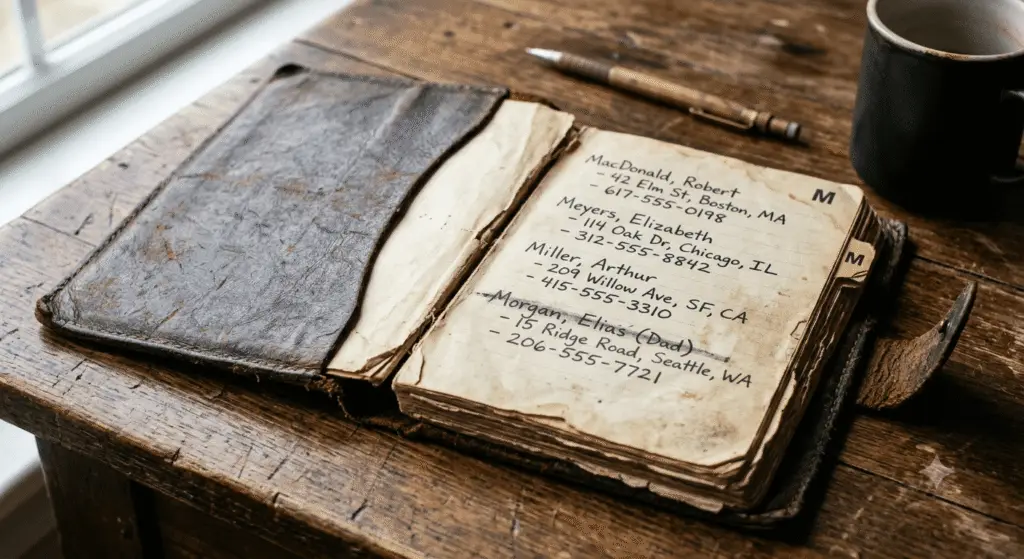 M
MacDonald, Robert
- 42 Elm St, Boston, MA
- 617-555-0198
Meyers, Elizabeth
- 114 Oak Dr, Chicago, IL
- 312-555-8842
M
Miller, Arthur
- 209 Willow Ave, SF, CA
415-555-3310
Morgan, Elias (Dad)
- 15 Ridge Road, Seattle, WA
206-555-7721